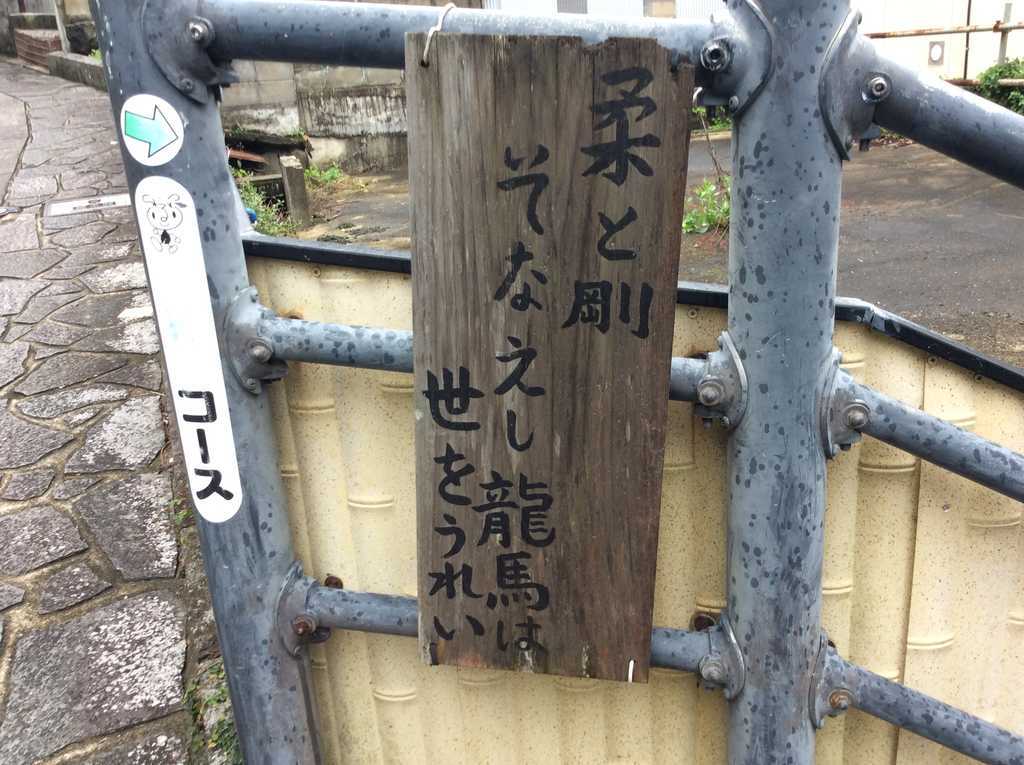 柔と剛
そなえし龍馬は
世をうれい
コース